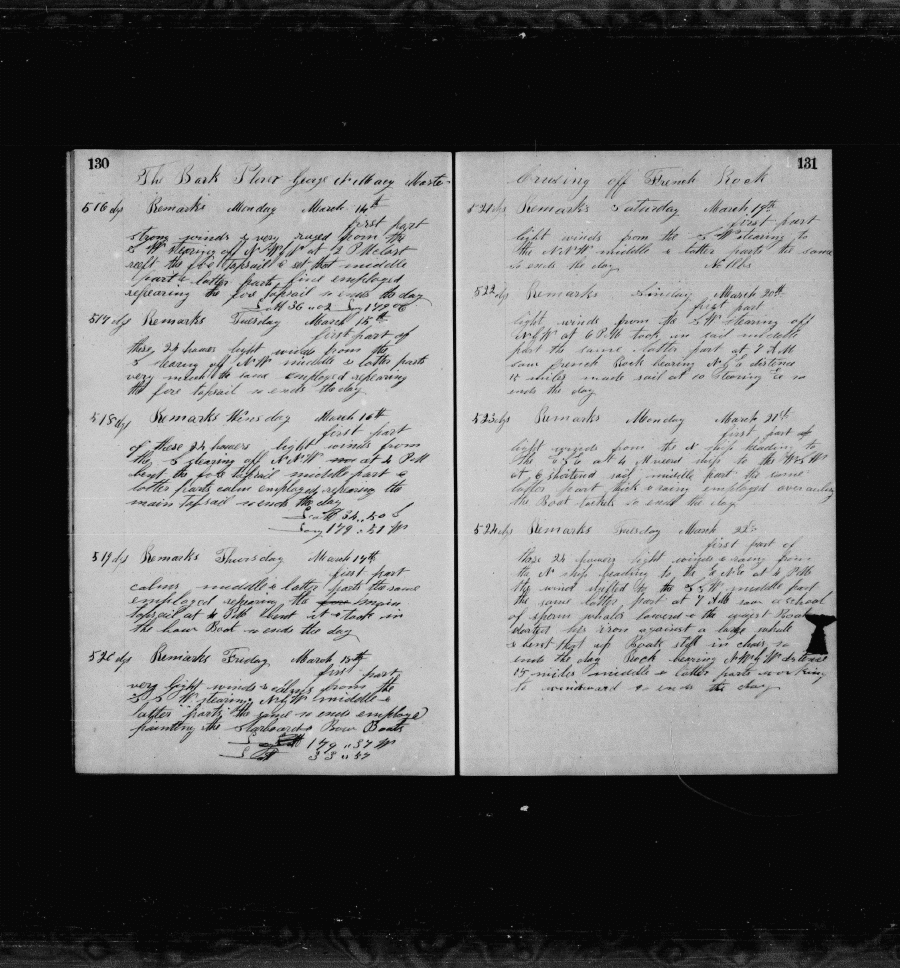 130
The Bark Plover George N Macy Master
516 dys Remarks Monday March 14th
first part
strong winds & very ruged from the
S W stearing off N W at 4 P M close
reeft the fore topsail & set that middle
part & latter part fine employed
repearing the fore topsail so ends the day
517 dys Remarks Tuesday March 15th
first part of
these 24 houers light winds from the
S stearing off N W middle & latter parts
very much the same employed repearing
the fore topsail so ends the day
518 dys Remarks Winsday March 16th
first part
of these 24 houers light winds from
the S stearing off N N W at 4 P M
bent the fore topsail middle part &
latter parts calm employed repearing the
main topsail so ends the day
Latt 34 .. 50 S
Long 179 .. 51 W
519 dys Remarks Thursday March 17th
first part
calms middle & latter parts the same
employed repearing the main
topsail at 4 P M bent it & took in
the bow Boat so ends the day
520 dys Remarks Friday March 18th
first part
very light winds & calms from the
S S W stearing N by W middle &
latter parts the same so ends employed
painting the Starboard & Bow Boats
Long 179 .. 37 W
Latt 33 .. 57
131
Cruising off French Rock
521 dys Remarks Saturday March 19th
first part
light winds from the S W stearing to
the N N W middle & latter parts the same
so ends the day No Obs
522 dys Remarks Sunday March 20th
first part
light winds from the S W stearing off
N by W at 6 P M took in sail middle
part the same latter part at 7 A M
saw french Rock bearing N E distance
miles made sail at so
ends the day
523 dys Remarks Monday March 21st
first part of
light winds from the N ship heading to
the E at 4 ship to the W
at 6 shortend sail middle part the same
latter part thick & rainy employed over
the Boat so ends the day
524 dys Remarks Tuesday March 22
first part of
these 24 houers light winds & rainy from
the N ship heading to the E N E at 4 P M
the wind shifted to the S W middle part
the same latter part at 7 A M saw a school
of sperm whales lowerd & the waist Boat
darted his iron against a large whale
& bent that up Boats still in chase so
ends the day Rock bearing distance
15 miles middle & latter parts working
to windward so ends the day